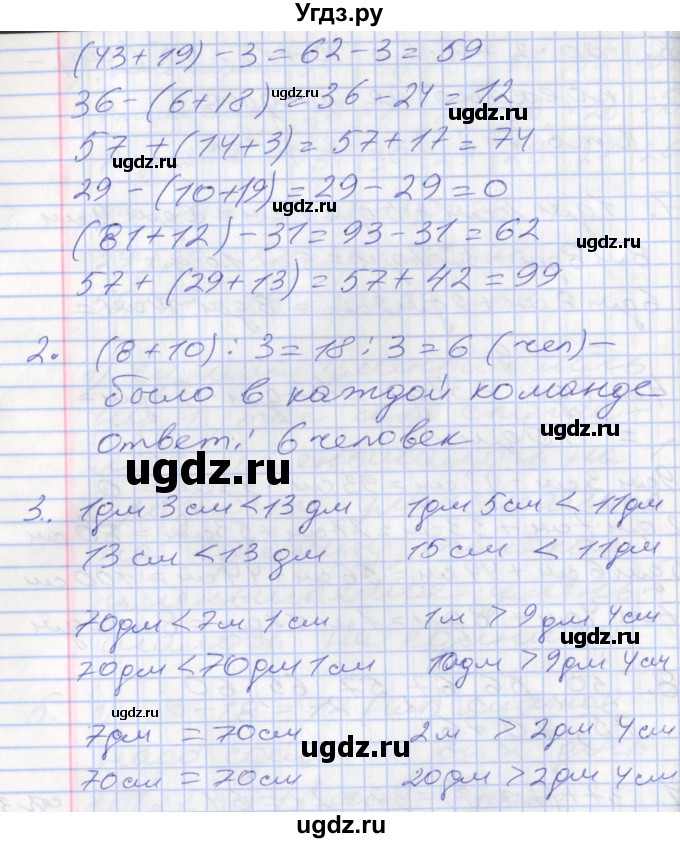 Угдз.ру
(43+19)-3=62-3=59
36-(6+18)=36-24=12
57+(14+3)=57+17=74
29-(10+19)=29-29=0
(81+12)-31=93-31=62
57+(29+13)=57+42=99
2. (8+10):3=18:3=6 (чел)-
было в каждой команде
ответ: 6 человек
3. 1дм 3см<13дм 1дм 5см < 11дм
13см <13дм 15см < 11дм
70дм<7м 1см 1м > 9дм 4см
70дм<70дм 1см 10дм>9дм 4см
7дм = 70см 2м > 2дм 4см
70см = 70см 20дм>2дм 4см
ugdz.ru
ugdz.ru
ugdz.ru
ugdz.ru
ugdz.ru
ugdz.ru
ugdz.ru
ugdz.ru
ugdz.ru
ugdz.ru
ugdz.ru
ugdz.ru
ugdz.ru
ugdz.ru